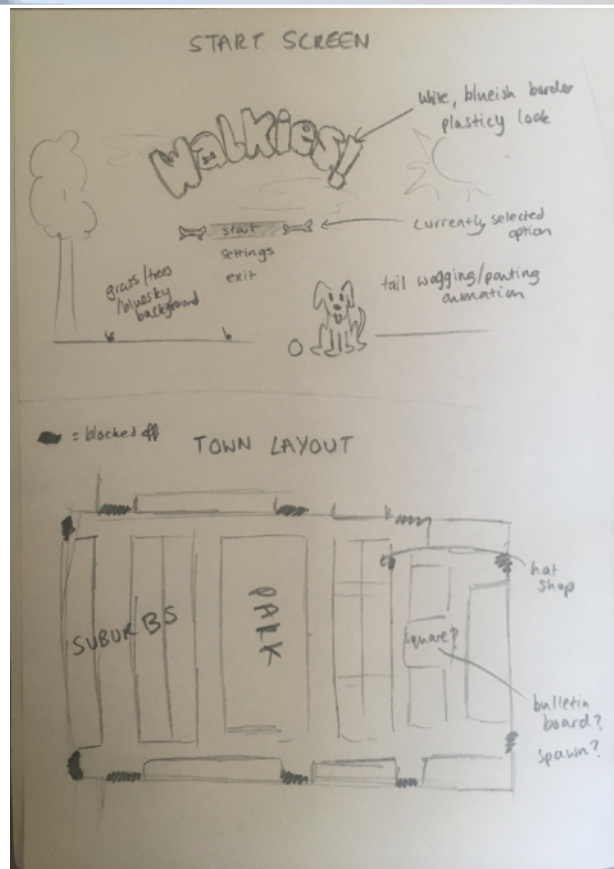 START SCREEN
Walkies!
white, blueish border
plasticy look
start
settings
exit
currently selected
option
grass/trees
/bluesky
background
tail wagging/panting
animation
= blocked off
TOWN LAYOUT
SUBURBS
PARK
square?
hat
shop
bulletin
board?
spawn?